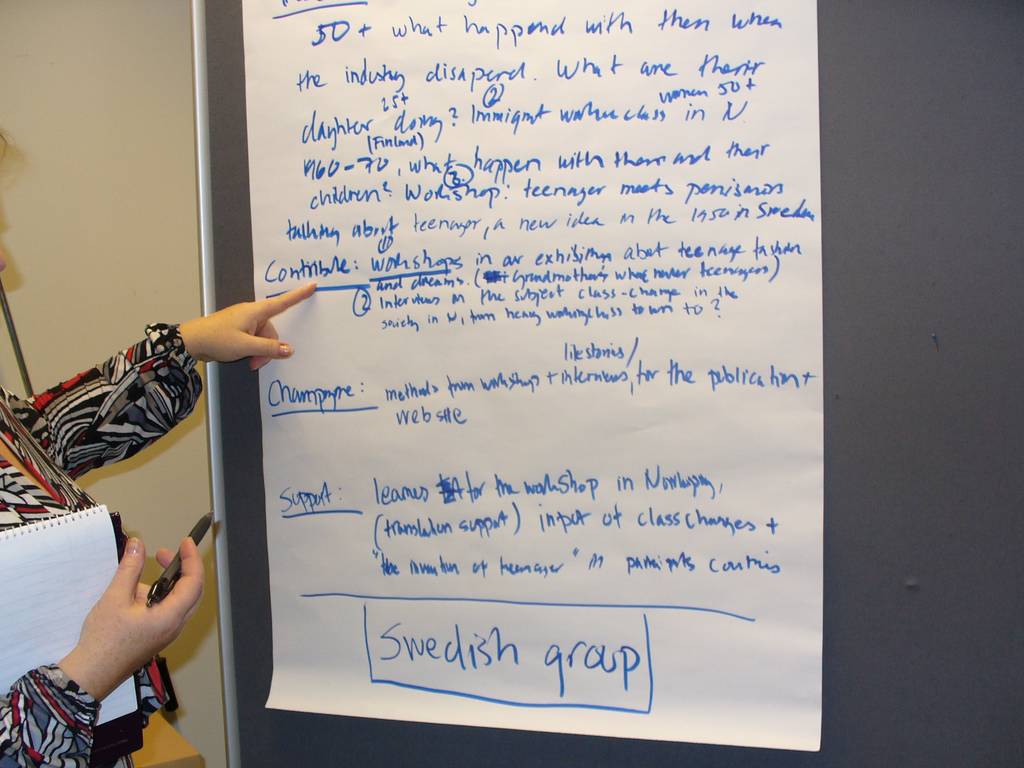 50+ what happend with them when
the industry disaperd. What are their
25+ ② women 50+
daughter doing? Immigrant workerclass in N.
(Finland)
1960-70, what happen with them and their
③
children? Workshop: teenager meets pensionors
talking about teenager, a new idea in the 1950 in Sweden
①
Contribute: workshops in our exhibitions about teenage fashion
and dreams. (Grandmothers who never teenagers)
② Interviews on the subject class-change in the
society in N, from heavy workingclass town to?
lifestories/
Champagne: methods from workshop + interviews, for the publication +
website
Support: learnes for the workshop in Norrköping,
(translation support) input of classchanges +
"the invention of teenager" in participants countris
Swedish group